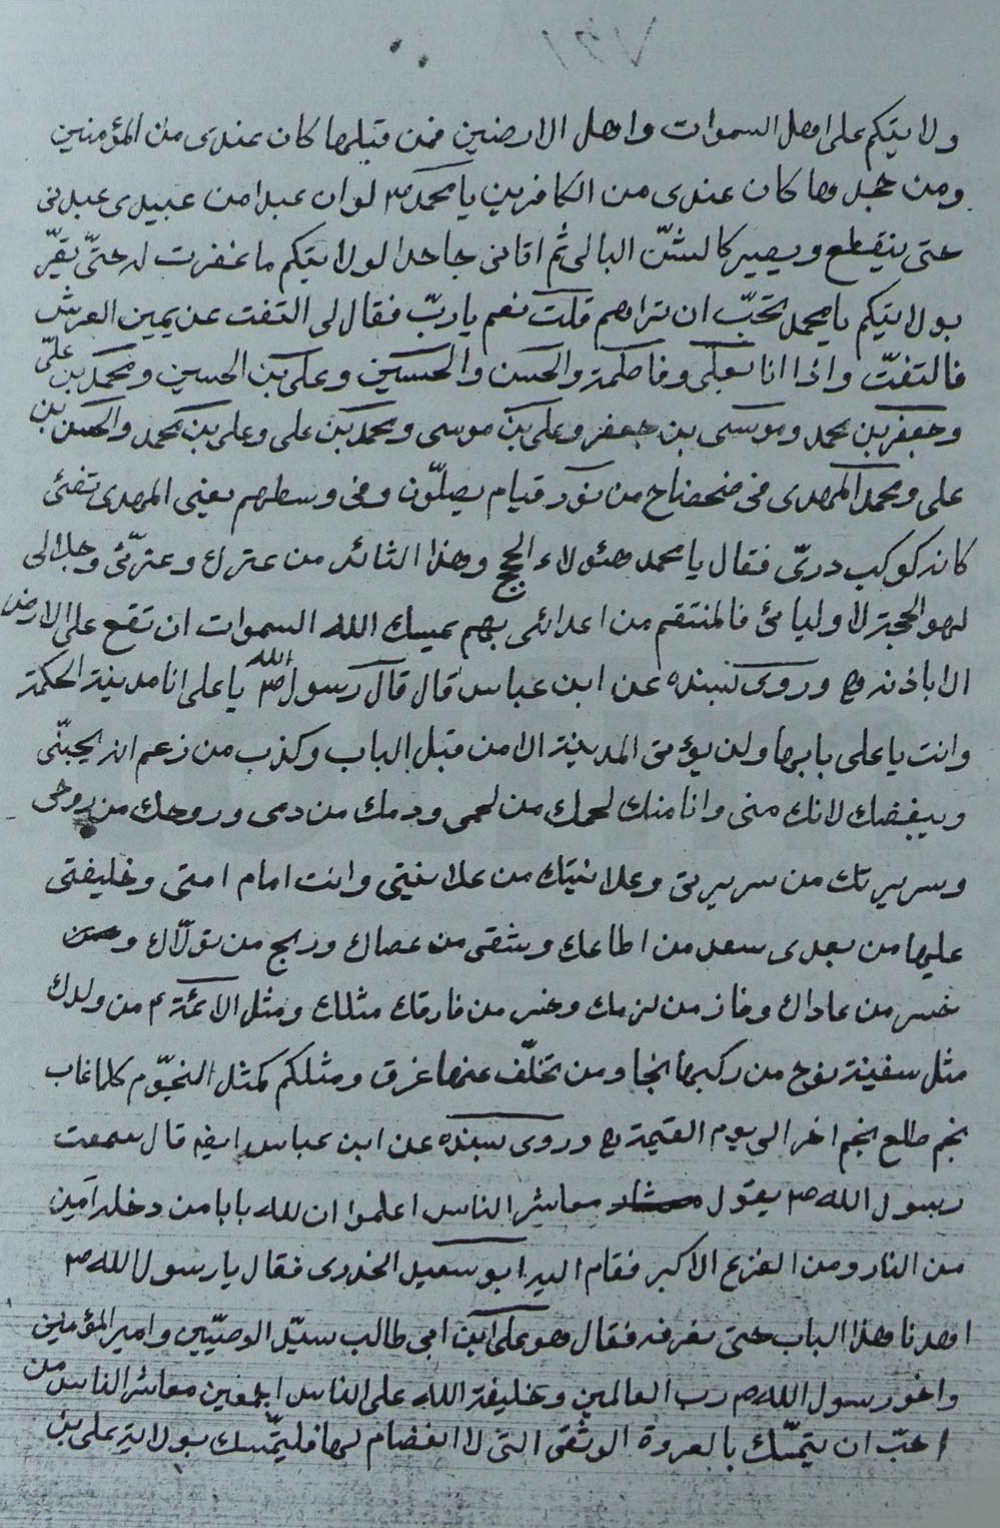 ولايتكم على اهل السموات واهل الارضين فمن قبلها كان عندى من المؤمنين
ومن جحدها كان عندى من الكافرين يا محمد ص لو ان عبدا من عبيدى عبدنى
حتى ينقطع ويصير كالشنّ البالى ثم اتانى جاحدا لولايتكم ما غفرت له حتّى يقرّ
بولايتكم يا محمد تحبّ ان تراهم قلت نعم يا ربّ فقال لى التفت عن يمين العرش
فالتفتّ واذا انا بعلى وفاطمة والحسن والحسين وعلى بن الحسين ومحمد بن علىّ
وجعفر بن محمد وموسى بن جعفر وعلى بن موسى ومحمد بن على وعلى بن محمد والحسن بن
على ومحمد المهدى فى ضحضاح من نور قيام يصلّون وفى وسطهم يعنى المهدى تضئ
كانه كوكب درىّ فقال يا محمد هئولاء الحجج وهذا الثائر من عترك وعزتئ وجلالى
لهو الحجة لاوليائى فالمنتقم من اعدائى بهم يمسك الله السموات ان تقع على الارض
الا باذنه وروى بسنده عن ابن عباس قال قال رسول الله ص يا على انا مدينة الحكمة
وانت يا على بابها ولن يؤتى المدينة الا من قبل الباب وكذب من زعم انه يحبّنى
ويبغضك لانك منى وانا منك لحمك من لحمى ودمك من دمى وروحك من روحى
وسريرتك من سريرتى وعلانيتك من علانيتى وانت امام امتى وخليفتى
عليها من بعدى سعد من اطاعك وشقى من عصاك وربح من تولّاك و
خسر من عاداك وفاز من لزمك وخسر من فارقك مثلك ومثل الائمّة ع من ولدك
مثل سفينة نوح من ركبها نجا ومن تخلّف عنها غرق ومثلكم كمثل النجوم كلما غاب
نجم طلع نجم اخر الى يوم القيمة وروى بسنده عن ابن عباس ايضا قال سمعت
رسول الله ص يقول معاشر الناس اعلموا ان لله بابا من دخله آمن
من النار ومن الفزع الاكبر فقام اليه ابو سعيد الخدرى فقال يا رسول الله ص
اهدنا هذا الباب حتى نعرفه فقال هو على ابن ابى طالب سيّد الوصيّين وامير المؤمنين
واخو رسول الله ص رب العالمين وخليفة الله على الناس اجمعين معاشر الناس من
احبّ ان يتمسّك بالعروة الوثقى التى لا انفصام لها فليتمّسك بولاية على بن